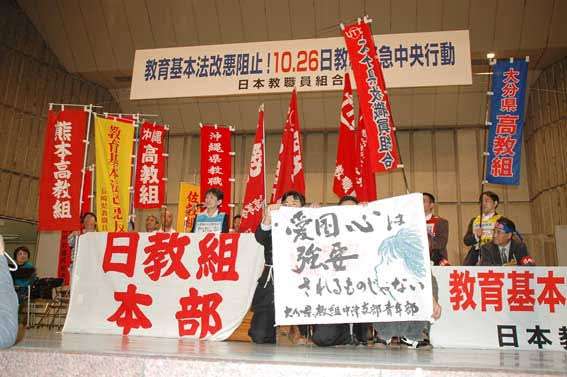 教育基本法改悪阻止!10.26日教
急中央行動
日本教職員組合
大分県
高教組
熊本高教組
教育基本法改悪反
沖縄
高教組
沖縄県教職
日教組
本部
愛国心は
強要
されるものじゃない
大分県教組中津支部青年部
教育基本
日本教